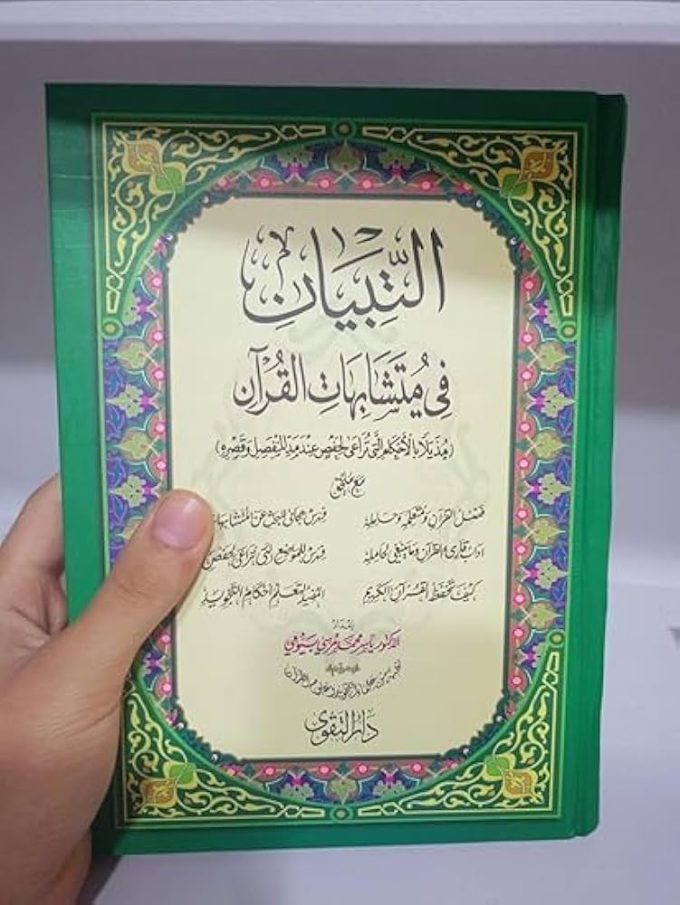 التِّبيَان
فِي مُتَشَابِهَاتِ القُرْآن
(مُذَيَّلًا بِالأَحْكَامِ الَّتِي تُرَاعَى لِحَفْصٍ عِنْدَ مَدِّ المُنْفَصِلِ وَقَصْرِهِ)
مع ملحق
فضل القرآن ومتعلمه وحامله
آداب قارئ القرآن وما ينبغي لحامله
كيف تحفظ القرآن الكريم
فهرس هجائي للبحث عن المتشابهات
فهرس للمواضع التي تراعى لحفص
المفيد لتعلم أحكام التجويد
إعداد
الدكتور ياسر محمد مرسي بيومي
دار التقوى